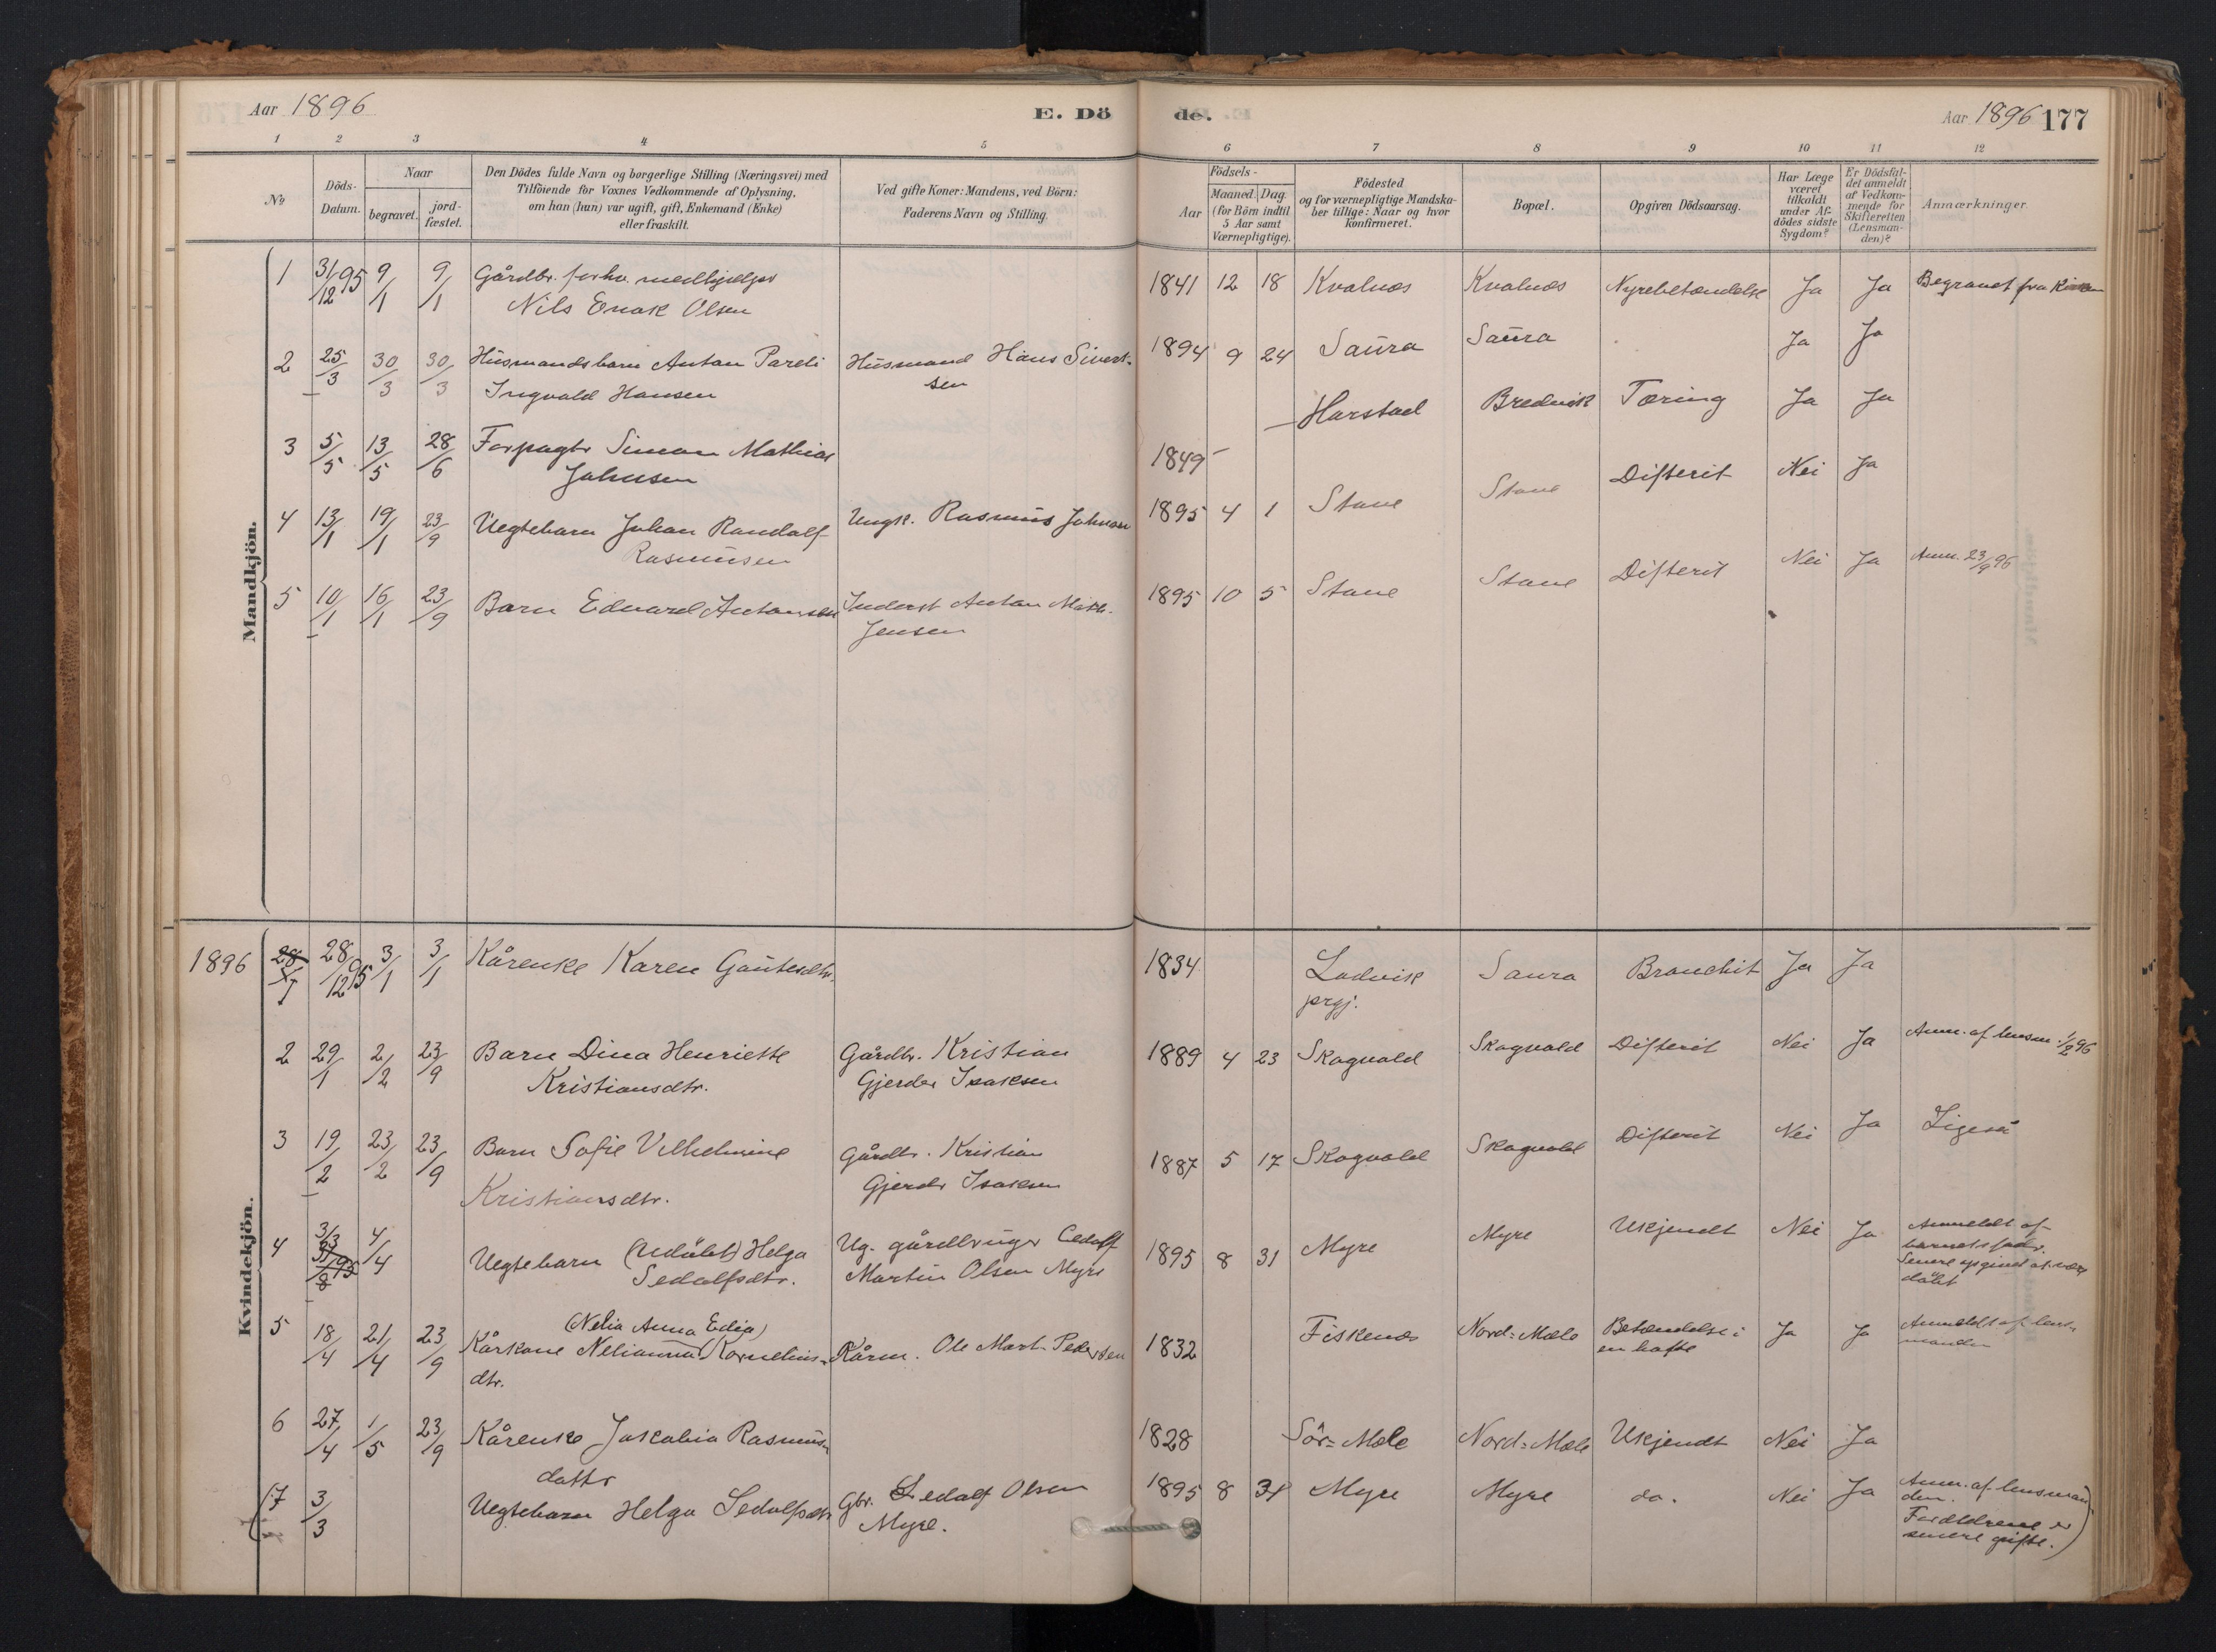 Aar 1896
E. Dö
de.
Aar 1896 177
1 2 3 4 5 6 7 8 9 10 11 12
№
Döds-
Datum.
Naar
begravet.
jord-
fæstet.
Den Dödes fulde Navn og borgerlige Stilling (Næringsvei) med
Tilföiende for Voxnes Vedkommende af Oplysning,
om han (hun) var ugift, gift, Enkemand (Enke)
eller fraskilt.
Ved gifte Koner: Mandens, ved Börn:
Faderens Navn og Stilling.
Födsels-
Aar
Maaned. Dag.
(for Börn indtil
5 Aar samt
Værnepligtige).
Födested
og for værnepligtige Mandska-
ber tillige: Naar og hvor
konfirmeret.
Bopæl.
Opgiven Dödsaarsag.
Har Læge
været
tilkaldt
under Af-
dödes sidste
Sygdom?
Er Dödsfal-
det anmeldt
af Vedkom-
mende for
Skifteretten
(Lensman-
den)?
Anmærkninger.
Mandkjön.
1 31/12 95 9/1 9/1 Gårdbr. forhv. medhjælper 1841 12 18 Kvalnæs Kvalnæs Nyrebetændelse Ja Ja Begravet fra
Nils Enok Olsen
2 25/3 30/3 30/3 Husmandsbarn Anton Pareli Husmand Hans Sivert- 1894 9 24 Saura Saura Ja Ja
Ingvald Hansen sen
3 5/5 13/5 28/6 Forpagtr Simon Mathias 1849 Harstad Bredvik Tæring Ja Ja
Johnsen
4 13/1 19/1 23/9 Uegtebarn Johan Randolf Ungk. Rasmus Johnsen 1895 4 1 Stane Stane Difterit Nei Ja
Rasmussen
5 10/1 16/1 23/9 Barn Edvard Antonsen Inderst Anton Math. 1895 10 5 Stane Stane Difterit Nei Ja Anm. 23/9 96
Jensen
Kvindekjön.
1896 28/12 95 3/1 3/1 Kårenke Karen Gautesdtr. 1834 Ladvik Saura Bronchit Ja Ja
prgj.
2 29/1 2/2 23/9 Barn Dina Henriette Gårdbr. Kristian 1889 4 23 Skogvold Skogvold Difterit Nei Ja Anm. af lensm. 1/2 96
Kristiansdtr. Gjerder Isaksen
3 19/2 23/2 23/9 Barn Sofie Vilhelmine Gårdbr. Kristian 1887 5 17 Skogvold Skogvold Difterit Nei Ja Ligeså
Kristiansdtr. Gjerdr Isaksen
4 3/3 31/8 95 4/4 Uegtebarn (udöbt) Helga Ug. gårdbruger Cedolf 1895 8 31 Myre Myre Ukjendt Nei Ja Anmeldt af
Sedolfsdtr. Martin Olsen Myre barnets fadr.
Senere opgivet at være
döbt
(Nelia Anna Edia)
5 18/4 21/4 23/9 Kårkone Nelianna Kornelius- Kårm. Ole Mart. Pedersen 1832 Fiskenæs Nord-Mæle Betændelse i Ja Ja Anmeldt af lens-
dtr. en hofte manden
6 27/4 1/5 23/9 Kårenke Jakobia Rasmus- 1828 Sör-Mæle Nord-Mæle Ukjendt Nei Ja
dattr
(7 3/3 Uegtebarn Helga Sedolfsdtr Gbr. Sedolf Olsen 1895 8 31 Myre Myre do. Nei Ja Anm. af lensman
Myre. den.
Forældrene er
senere gifte.)